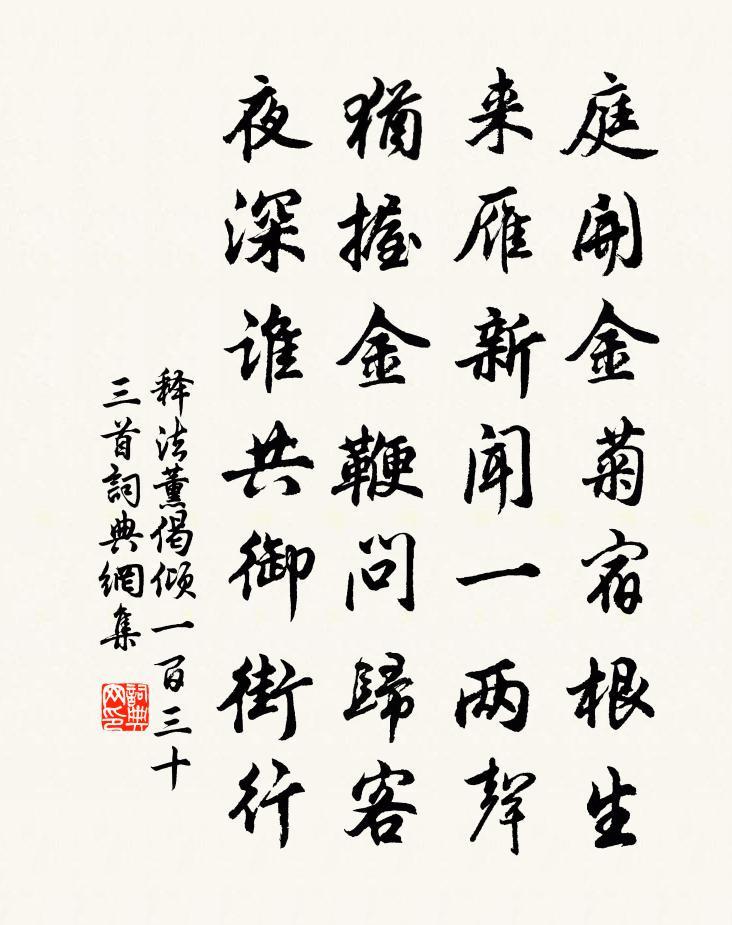 庭開金菊宿根生
来雁新聞一两聲
猶握金鞭問歸客
夜深誰共御街行
释法薰偈倾一百三十
三首詞典網集
詞典网印